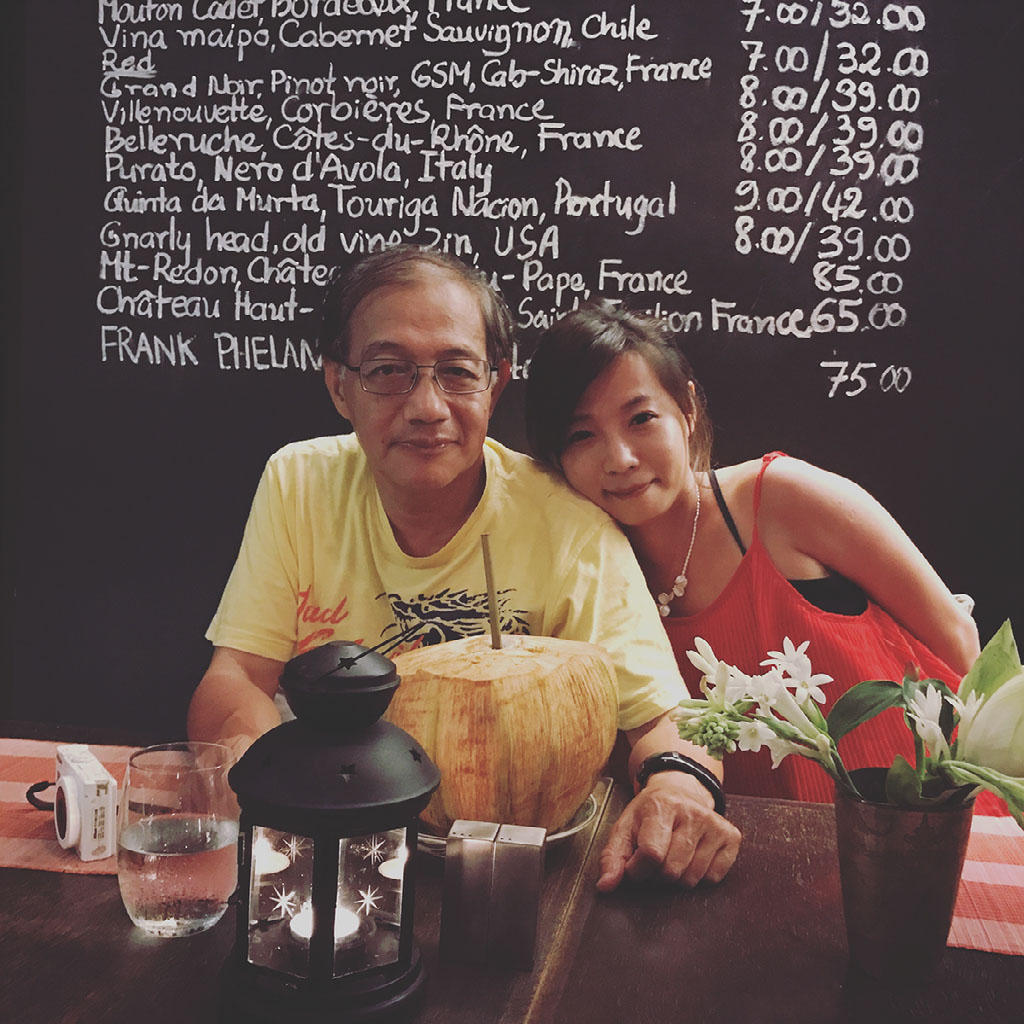 Mouton Cadet, Bordeaux, France 7.00/32.00
Vina maipo, Cabernet Sauvignon, Chile 7.00/32.00
Red
Grand Noir, Pinot noir, GSM, Cab-Shiraz, France 8.00/39.00
Villenouvette, Corbières, France 8.00/39.00
Belleruche, Côtes-du-Rhône, France 8.00/39.00
Purato, Nero d'Avola, Italy
Quinta da Murta, Touriga Nacion, Portugal 9.00/42.00
Gnarly head, old vine Zin, USA 8.00/39.00
Mt-Redon, Châte -Pape, France 85.00
Château Haut- Saint France 65.00
FRANK PHELAN 75.00